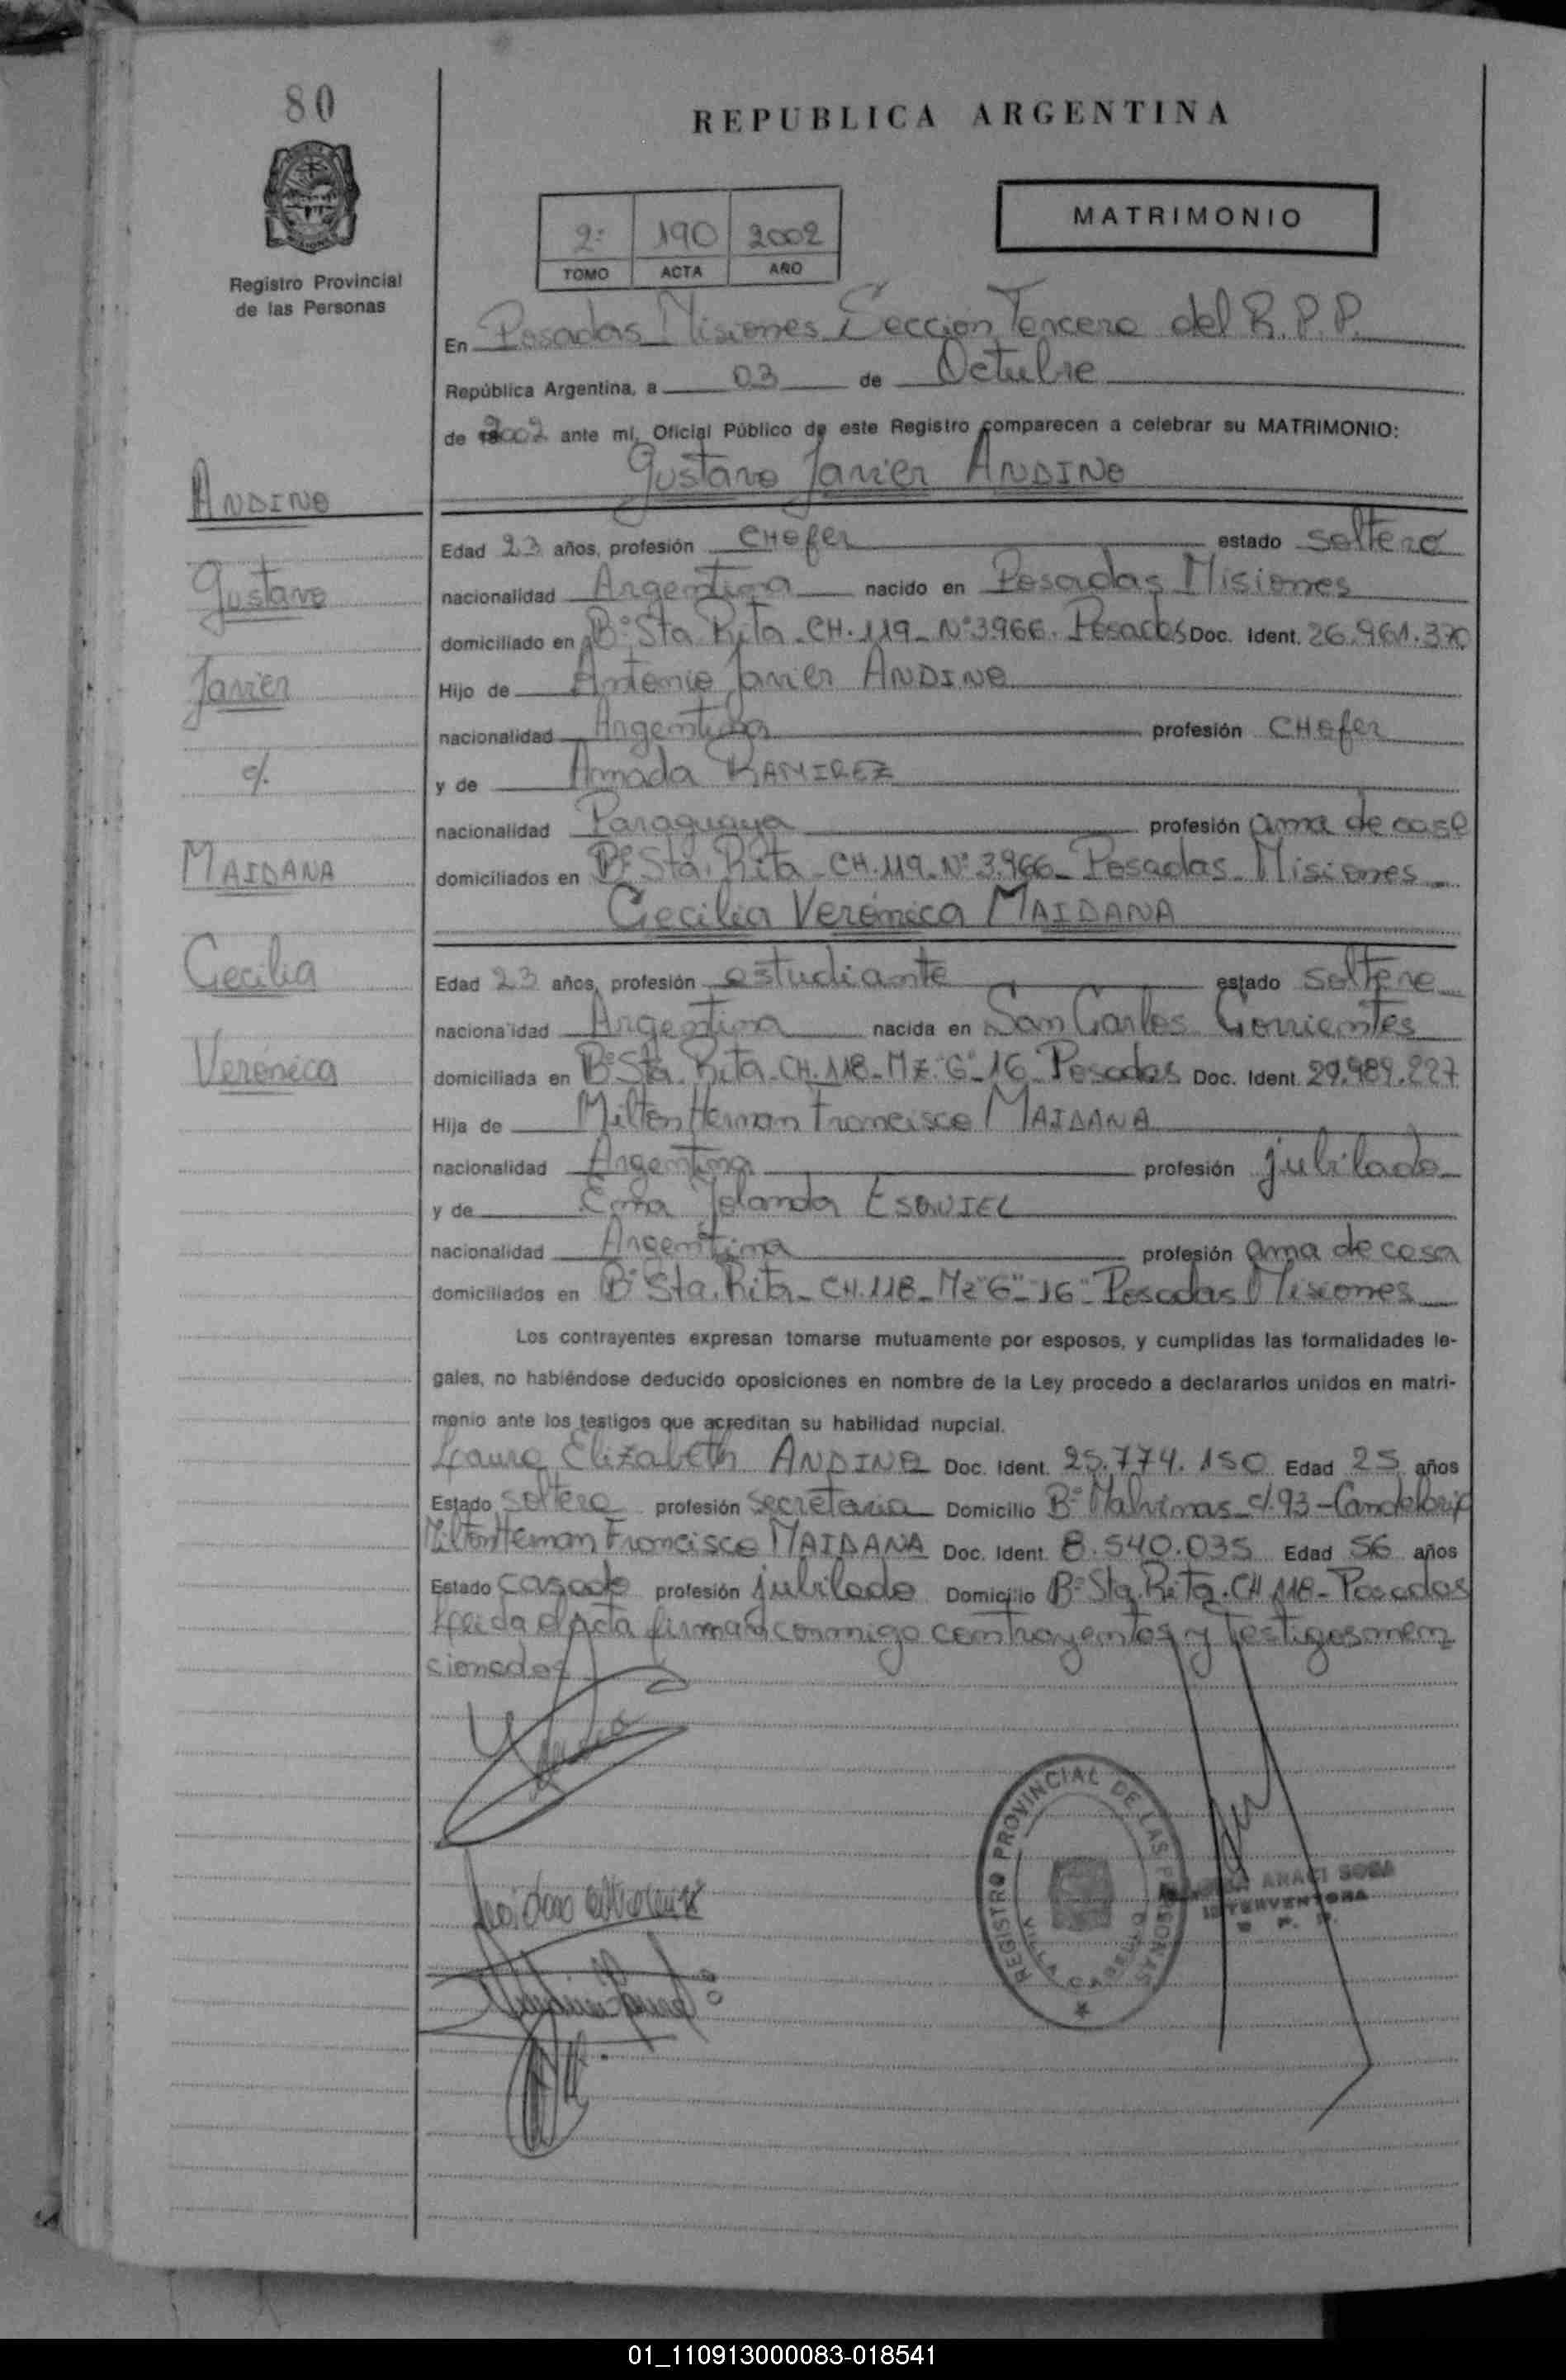 80
REPUBLICA ARGENTINA
MATRIMONIO
2º 190 2002
TOMO ACTA AÑO
Registro Provincial
de las Personas
En Posadas Misiones Sección Tercera del R.P.P.
República Argentina, a 03 de Octubre
de 2002 ante mí, Oficial Público de este Registro comparecen a celebrar su MATRIMONIO:
Gustavo Javier ANDINO
ANDINO
Gustavo
Javier
c/.
MAIDANA
Cecilia
Verónica
Edad 23 años, profesión CHofer estado soltero
nacionalidad Argentina nacido en Posadas Misiones
domiciliado en Bº Sta Rita - CH. 119 - Nº 3966. Posadas Doc. Ident. 26.961.370
Hijo de Antonio Javier ANDINO
nacionalidad Argentina profesión CHofer
y de Amada RAMIREZ
nacionalidad Paraguaya profesión ama de casa
domiciliados en Bº Sta. Rita - CH. 119 - Nº 3.966 - Posadas - Misiones
Cecilia Verónica MAIDANA
Edad 23 años, profesión estudiante estado soltera
nacionalidad Argentina nacida en San Carlos Corrientes
domiciliada en Bº Sta. Rita - CH. 118 - MZ. "G" - 16 - Posadas Doc. Ident. 29.989.227
Hija de Milton Hernan Francisco MAIDANA
nacionalidad Argentina profesión jubilado
y de Yolanda ESQUIEL
nacionalidad Argentina profesión ama de casa
domiciliados en Bº Sta. Rita - CH. 118 - Mz "G" - 16 - Posadas Misiones
Los contrayentes expresan tomarse mutuamente por esposos, y cumplidas las formalidades le-
gales, no habiéndose deducido oposiciones en nombre de la Ley procedo a declararlos unidos en matri-
monio ante los testigos que acreditan su habilidad nupcial.
Laura Elizabeth ANDINO Doc. Ident. 25.774.150 Edad 25 años
Estado soltera profesión secretaria Domicilio Bº Malvinas c/. 93 - Candelaria
Milton Hernan Francisco MAIDANA Doc. Ident. 8.540.035 Edad 56 años
Estado casado profesión jubilado Domicilio Bº Sta. Rita. CH 118 - Posadas
Leida el acta firman conmigo contrayentes y testigos men
cionados
REGISTRO PROVINCIAL DE LAS PERSONAS
VILLA CABELLO
ARACI SOSA
INTERVENTORA
R. P. P.
01_110913000083-018541